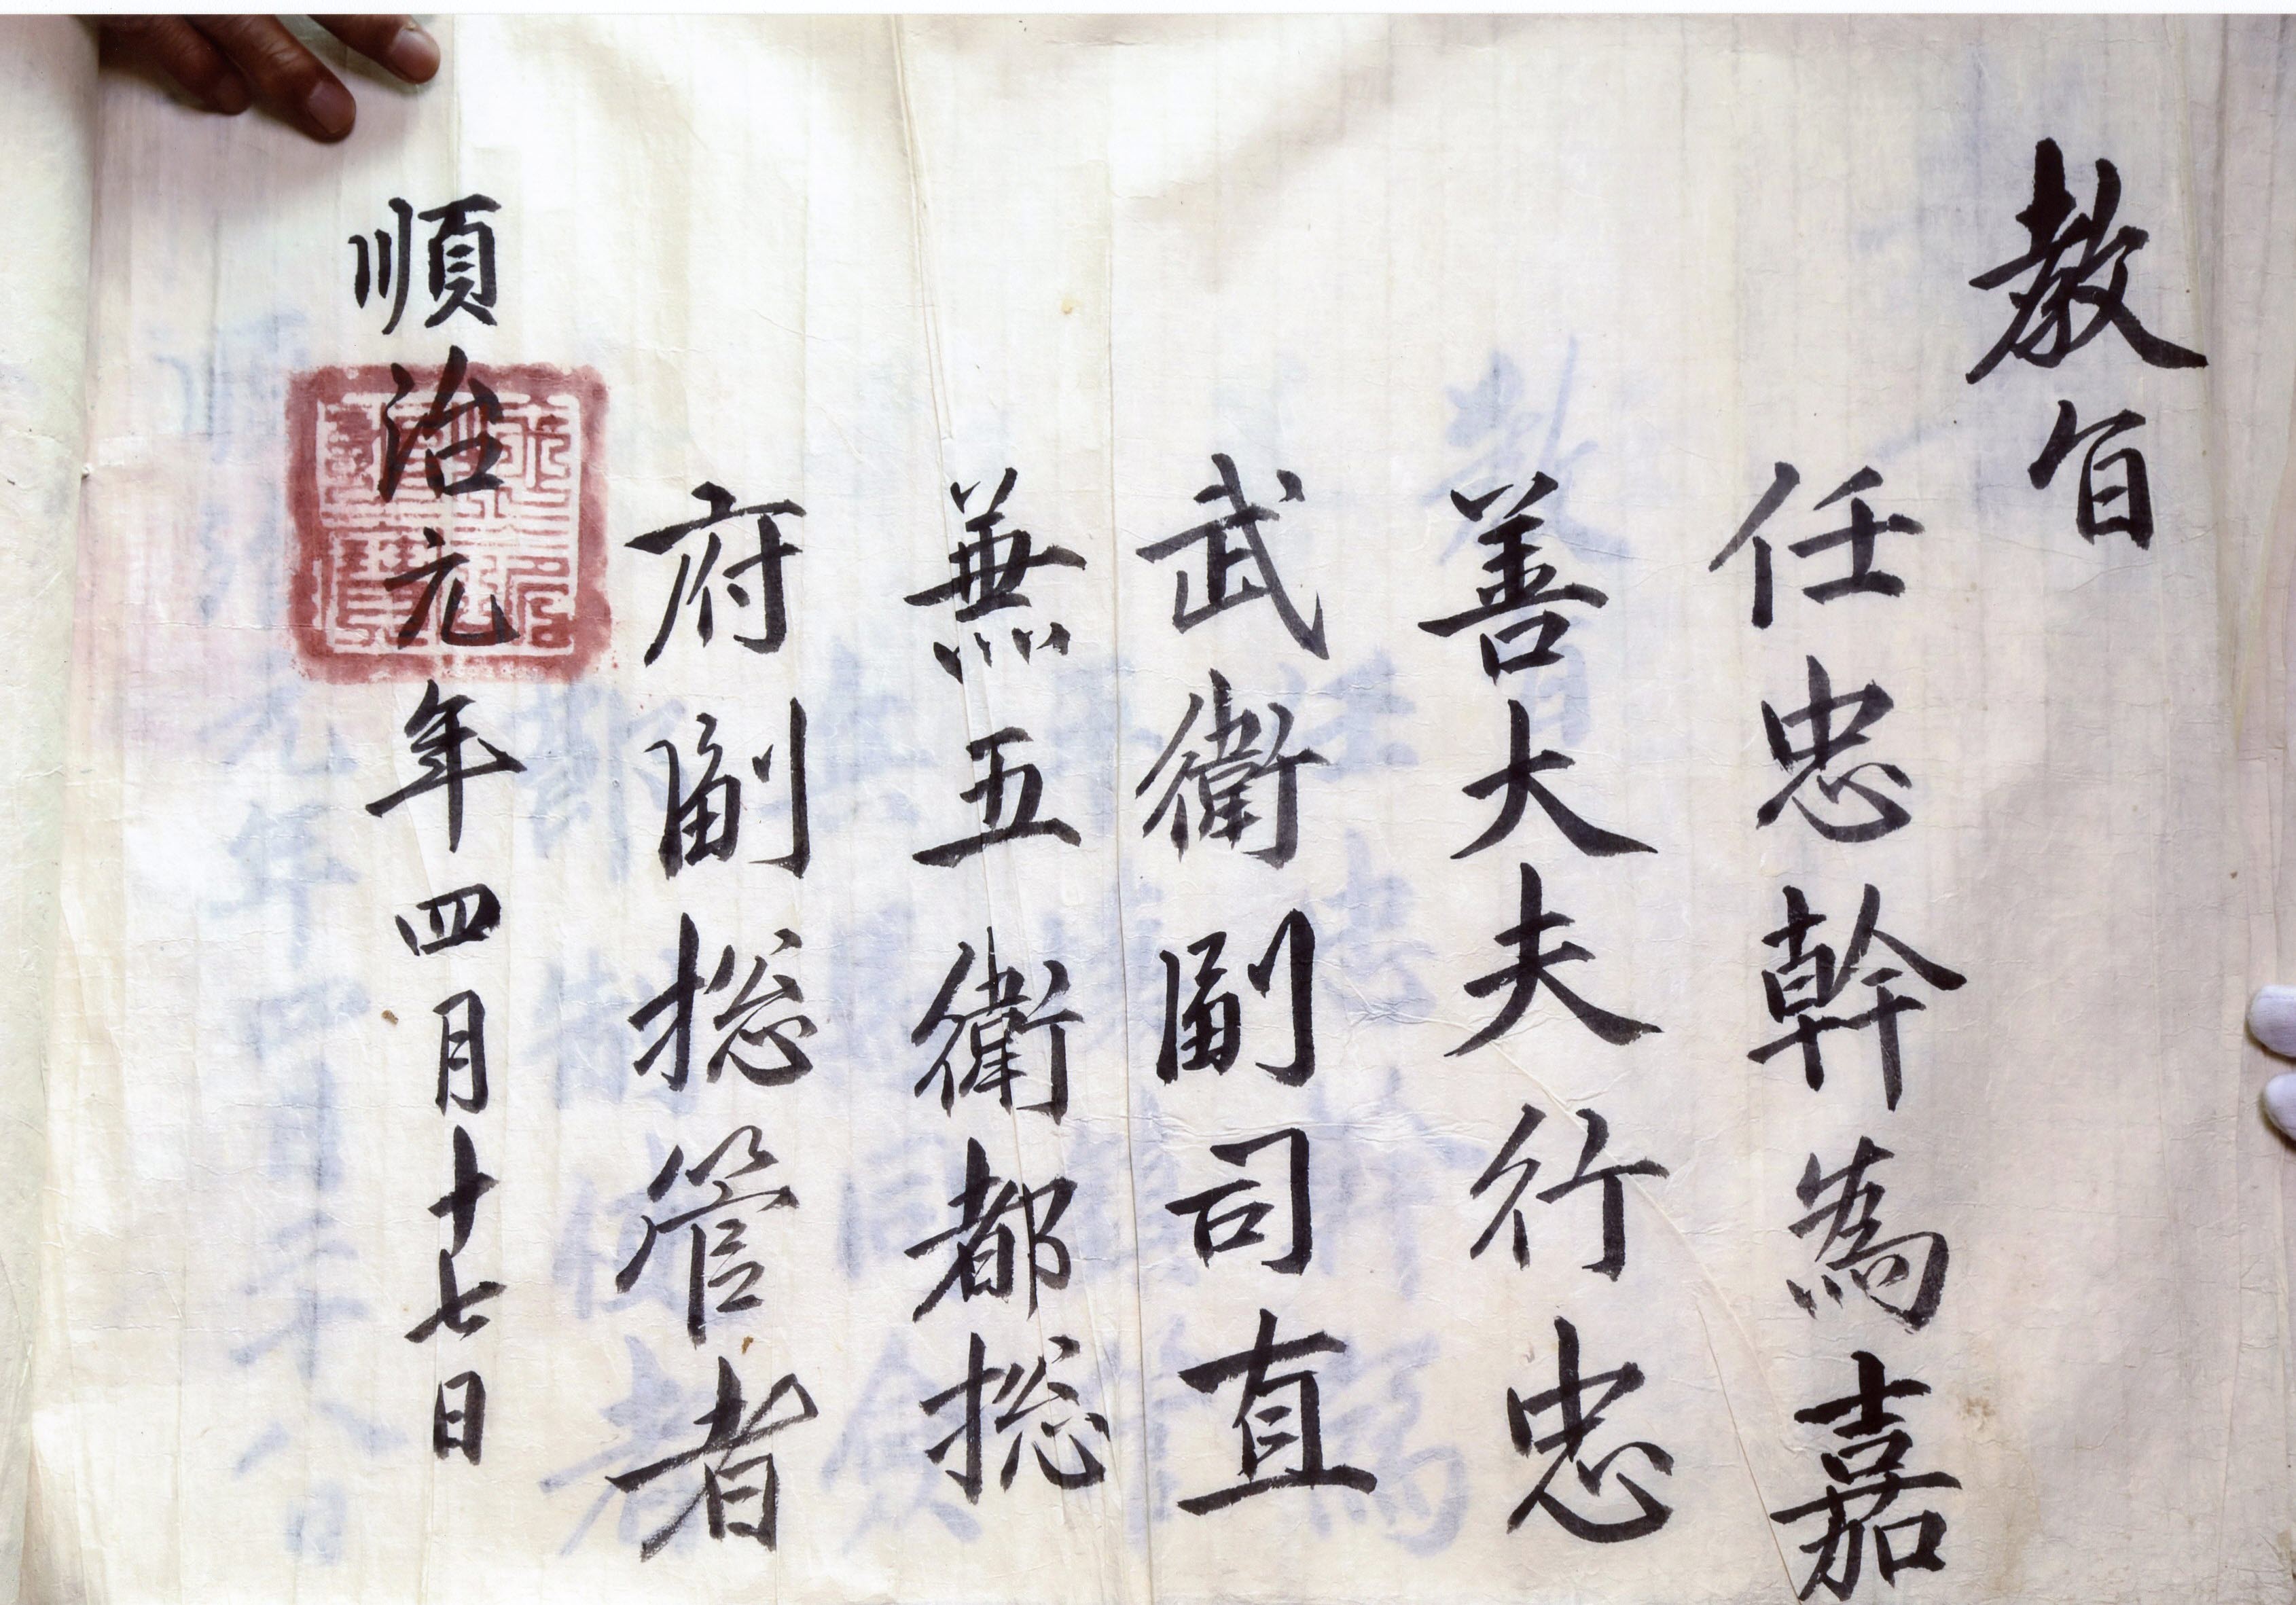 教旨
任忠幹為嘉
善大夫行忠
武衛副司直
兼五衛都捴
府副捴管者
順治元年四月十七日